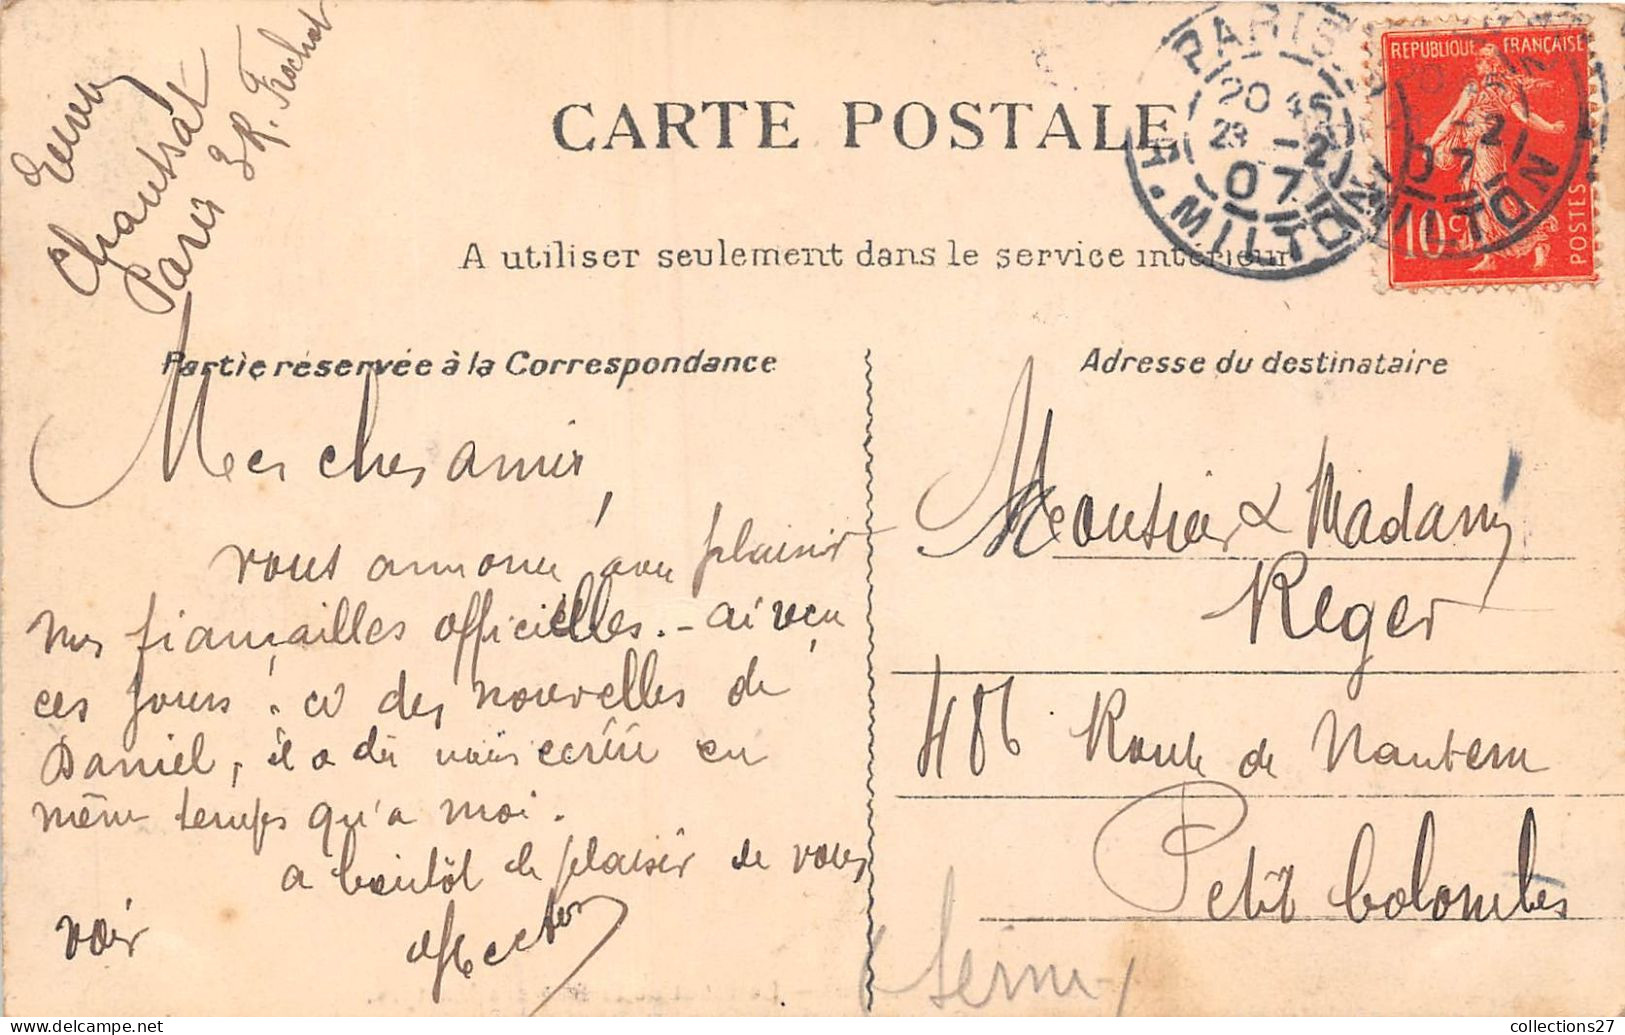 Chaussat
Paris 3 R. Frochot
CARTE POSTALE
A utiliser seulement dans le service intérieur
PARIS
20 45
23 -2
07
R. MILTON
REPUBLIQUE FRANÇAISE
10 c
POSTES
Partie réservée à la Correspondance
Mes chers amis,
vous annonce avec plaisir
mes fiançailles officielles. - ai reçu
ces jours ci des nouvelles de
Daniel, il a dû vous écrire en
même temps qu'a moi.
a bientôt le plaisir de vous
voir
Adresse du destinataire
Monsieur & Madame
Reger
486 Route de Nanterre
Petit Colombes
(Seine)
collections27